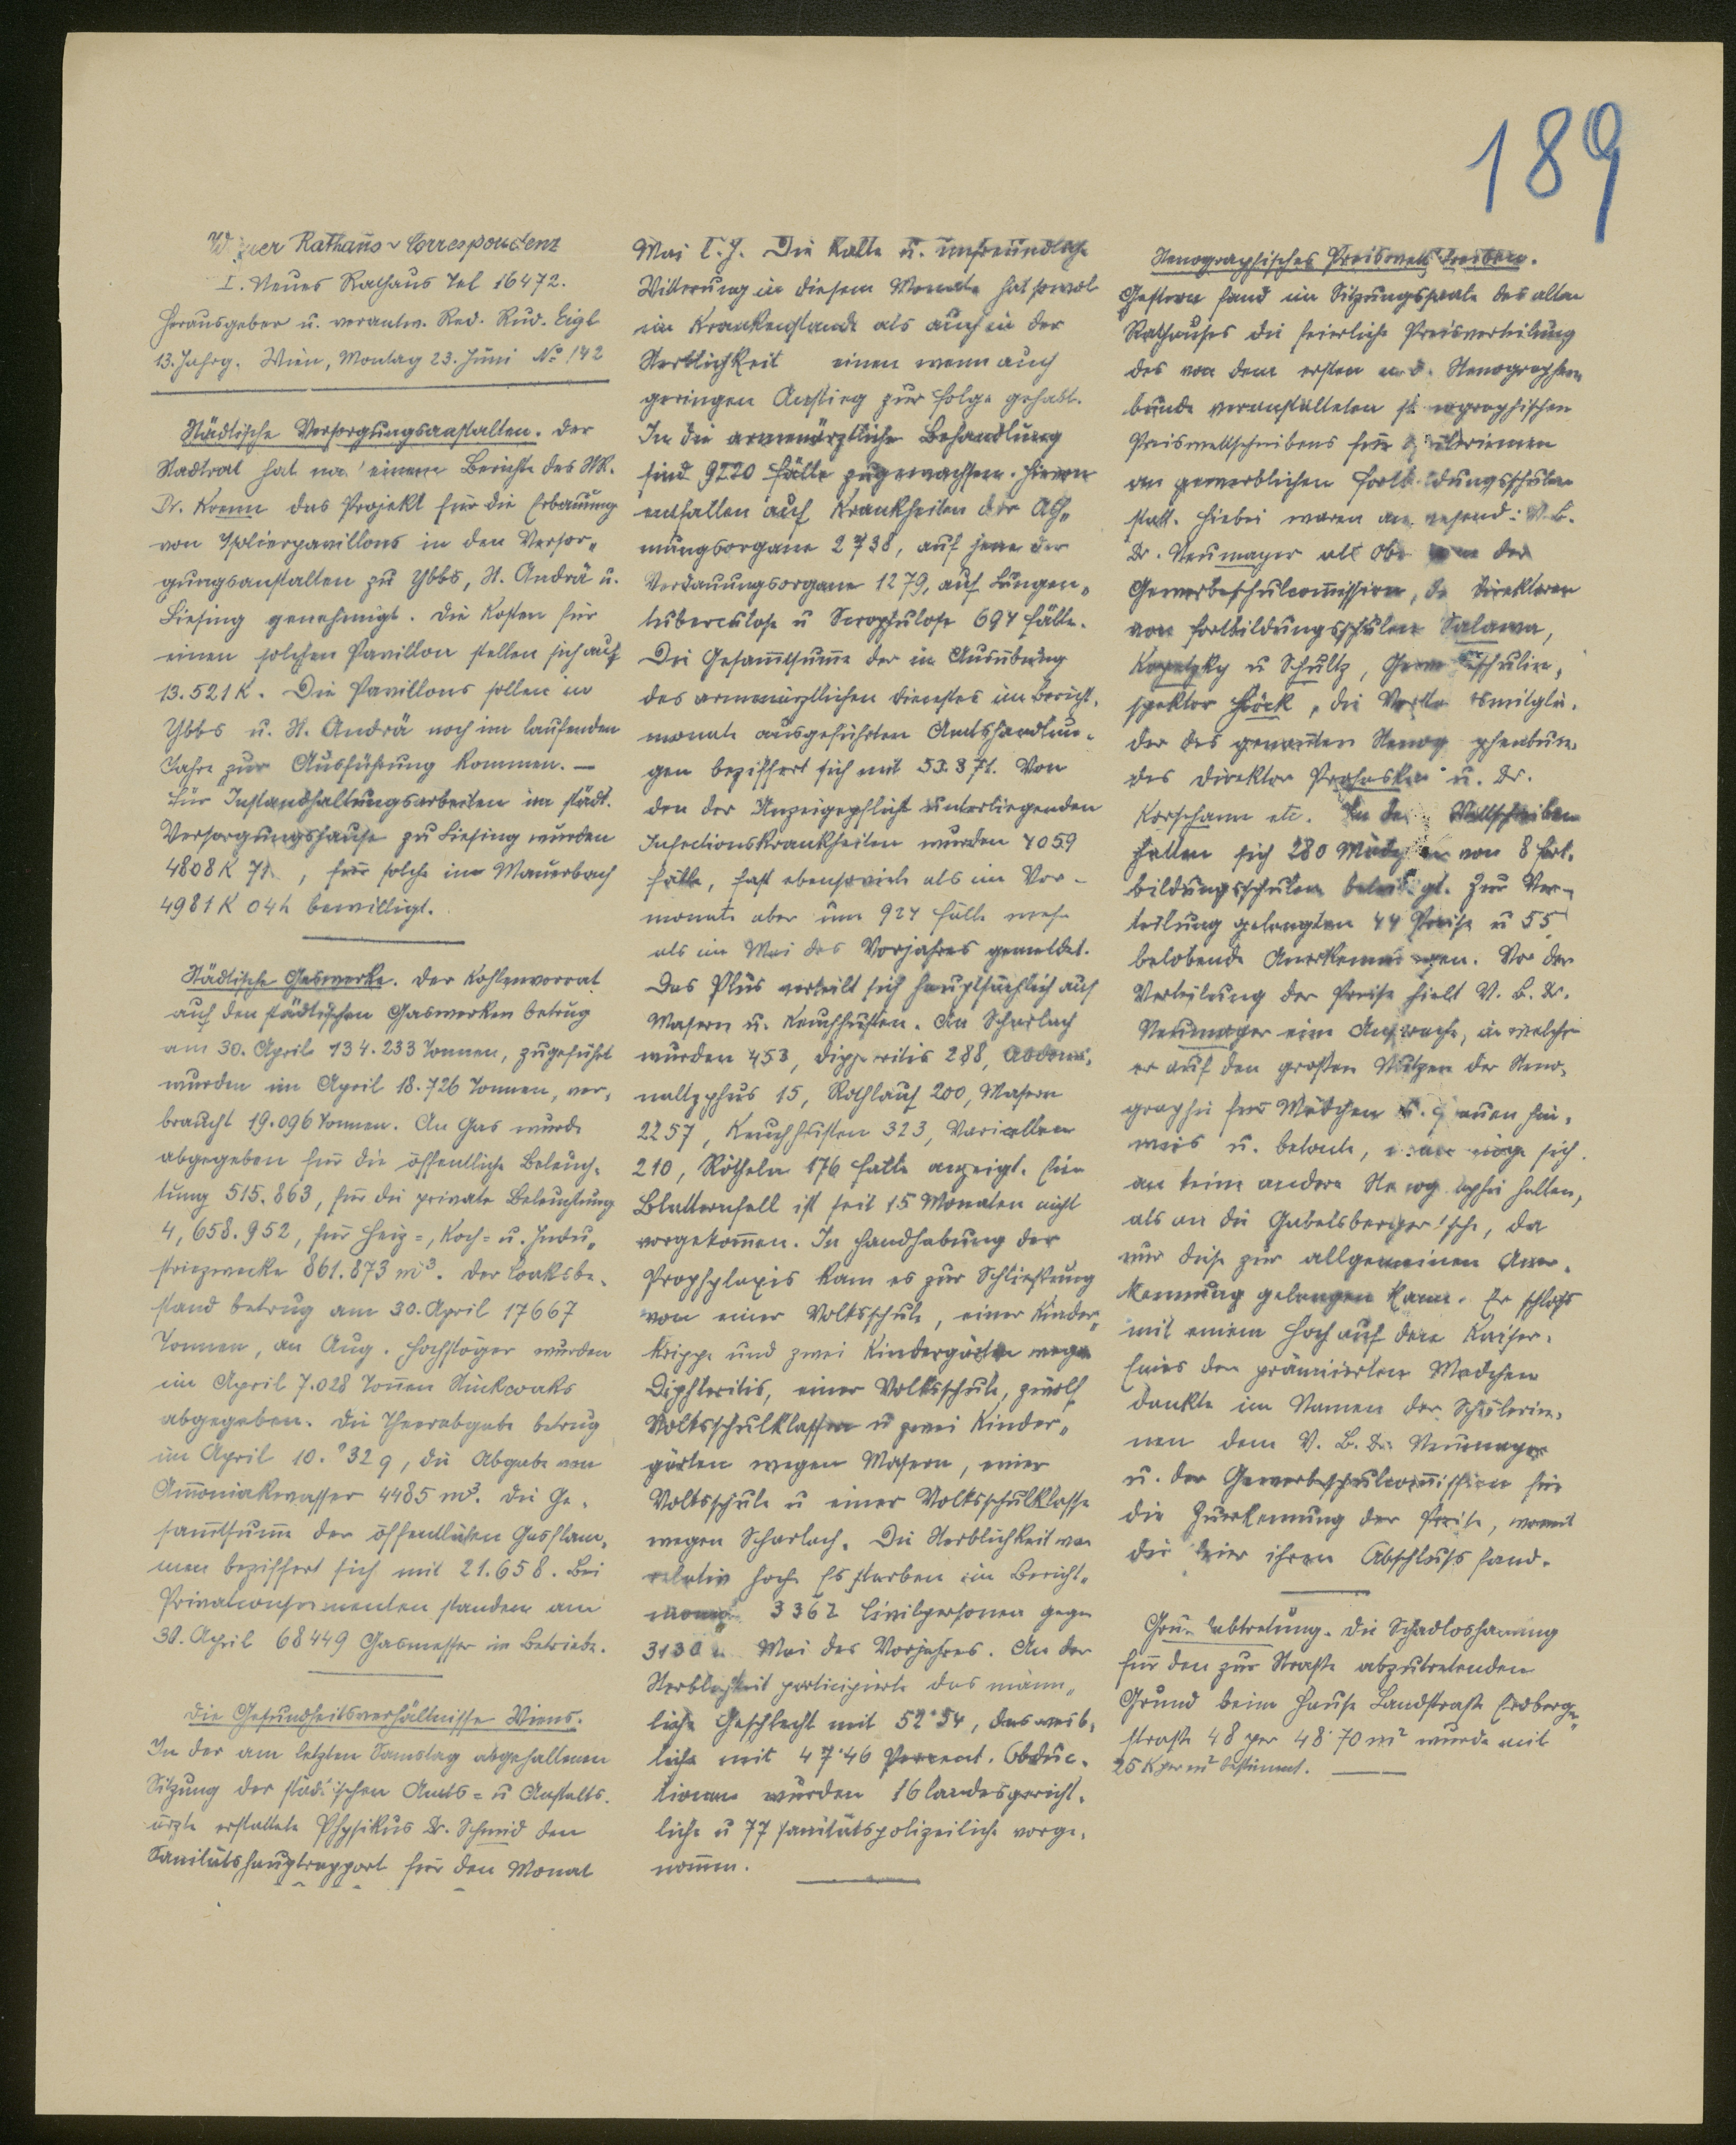 189
Wiener Rathaus-Correspondenz
I. Neues Rathaus Tel 16472.
Herausgeber u. verantw. Red. Rud. Eigl
13. Jahrg. Wien, Montag 23. Juni No 142
Städtische Versorgungsanstalten. Der
Stadtrat hat nach einem Berichte des StR.
Dr. Krenn das Projekt für die Erbauung
von Isolierpavillons in den Versor„
gungsanstalten zu Ybbs, St. Andrä u.
Liesing genehmigt. Die Kosten für
einen solchen Pavillon stellen sich auf
13.521 K. Die Pavillons sollen in
Ybbs u. St. Andrä noch im laufenden
Jahre zur Ausführung kommen. —
Für Instandhaltungsarbeiten im städt.
Versorgungshause zu Liesing wurden
4808 K 71, für solche im Mauerbach
4981 K 04 h bewilligt.
Städtische Gaswerke. Der Kohlenvorrat
auf den städtischen Gaswerken betrug
am 30. April 134.233 Tonnen, zugeführt
wurden im April 18.726 Tonnen, ver„
braucht 19.096 Tonnen. An Gas wurde
abgegeben für die öffentliche Beleuch„
tung 515.863, für die private Beleuchtung
4,658.952, für Heiz=, Koch= u. Indu„
striezwecke 861.873 m³. Der Coaksbe„
stand betrug am 30. April 17667
Tonnen, an Aug. Hochstöger wurden
im April 7.028 Tonnen Stückcoaks
abgegeben. Die Theerabgabe betrug
im April 10. 32 q, die Abgabe von
Amoniakwasser 4485 m³. Die Ge„
samtsumme der öffentlichen Gasflam„
men beziffert sich mit 21.658. Bei
Privatconsumenten standen am
30. April 68449 Gasmesser in Betriebe.
Die Gesundheitsverhältnisse Wiens.
In der am letzten Samstag abgehaltenen
Sitzung der städtischen Amts= u Anstalts„
ärzte erstattete Physikus Dr. Schmid den
Sanitätshauptrapport für den Monat
Mai l. J. Die kalte u. unfreundliche
Witterung in diesem Monate hat sowol
im Krankenstande als auch in der
Sterblichkeit einen wenn auch
geringen Anstieg zur Folge gehabt.
In die armenärztliche Behandlung
sind 9220 Fälle zugewachsen. Hievon
entfallen auf Krankheiten der Ath„
mungsorgane 2738, auf jene der
Verdauungsorgane 1279, auf Lungen„
tuberculose u Scrophulose 694 Fälle.
Die Gesamtsumme der in Ausübung
des armenärztlichen Dienstes im Bericht„
monate ausgeführten Amtshandlun„
gen beziffert sich mit 53.871. Von
den der Anzeigepflicht unterliegenden
Infectionskrankheiten wurden 4059
Fälle, fast ebensoviele als im Vor-
monate aber um 924 Fälle mehr
als im Mai des Vorjahres gemeldet.
Das Plus verteilt sich hauptsächlich auf
Masern u. Keuchhusten. An Scharlach
wurden 453, Diphteritis 288, Abdomi„
naltyphus 15, Rothlauf 200, Masern
2257, Keuchhusten 323, Varicellen
210, Rötheln 176 Fälle angezeigt. Ein
Blatternfall ist seit 15 Monaten nicht
vorgekommen. In Handhabung der
Prophylaxis kam es zur Schließung
von einer Volksschule, einer Kinder„
krippe und zwei Kindergärten wegen
Diphteritis, einer Volksschule, zwölf
Volksschulklassen u zwei Kinder„
gärten wegen Masern, einer
Volksschule u einer Volksschulklasse
wegen Scharlach. Die Sterblichkeit war
relativ hoch. Es starben im Bericht„
monate 3362 Civilpersonen gegen
3130 Mai des Vorjahres. An der
Sterblichkeit participierte das männ„
liche Geschlecht mit 52·54, das weib„
liche mit 47·46 Percent. Obduc„
tionen wurden 16 landesgericht„
liche u 77 sanitätspolizeiliche vorge„
nommen.
Stenographisches Preiswettschreiben.
Gestern fand im Sitzungssaale des alten
Rathauses die feierliche Preisverteilung
des von dem ersten n.ö. Stenographen
bunde veranstalteten stenographischen
Preiswettschreibens für Schülerinnen
an gewerblichen Fortbildungsschulen
statt. Hiebei waren anwesend: V.B.
Dr. Neumayer als Obmann der
Gewerbeschulcommission, die Direktoren
von Fortbildungsschulen Salawa,
Kopetzky u Schultz, Gewerbeschulin„
spektor Höck, die Vorstandsmitglie„
der des genannten Stenographenbun„
des Direktor Prohaska u. Dr.
Korschann etc. An dem Wettschreiben
hatten sich 280 Mädchen von 8 Fort„
bildungsschulen beteiligt. Zur Ver-
teilung gelangten 44 Preise u 55
belobende Anerkennungen. Vor der
Verteilung der Preise hielt V. B. Dr.
Neumayer eine Ansprache, in welcher
er auf den großen Nutzen der Steno„
graphie für Mädchen u. Frauen hin„
wies u. betonte, man möge sich
an keine andere Stenographie halten,
als an die Gabelsberger'sche, da
nur diese zur allgemeinen Aner„
kennung gelangen kann. Er schloß
mit einem Hoch auf den Kaiser.
Eines der prämiierten Mädchen
dankte im Namen der Schülerin„
nen dem V. B. Dr. Neumayer
u. der Gewerbeschulcommission für
die Zuerkennung der Preise, womit
die Feier ihren Abschluß fand.
Grundabtretung. Die Schadloshaltung
für den zur Straße abzutretenden
Grund beim Hause Landstraße Erdberg„
straße 48 per 48·70 m² wurde mit
25 K per m² bestimmt.